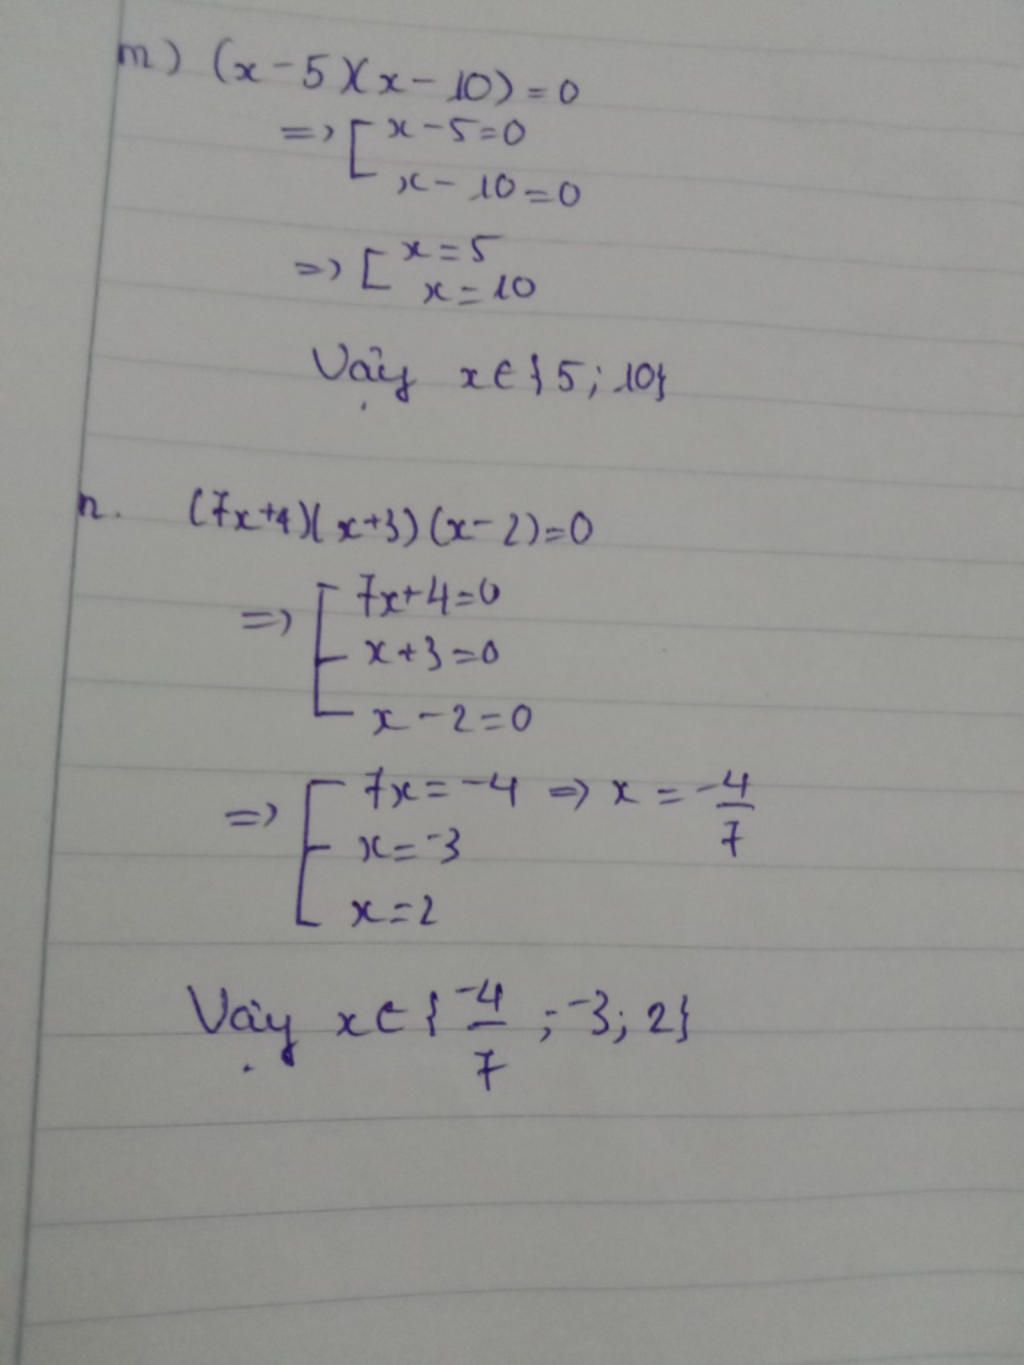 m) (x-5)(x-10)=0
=> [ x-5=0
x-10=0
=> [ x=5
x=10
Vậy x∈{5; 10}
n. (7x+4)(x+3)(x-2)=0
=> [ 7x+4=0
x+3=0
x-2=0
=> [ 7x=-4 => x = -4/7
x=-3
x=2
Vậy x∈{-4/7; -3; 2}